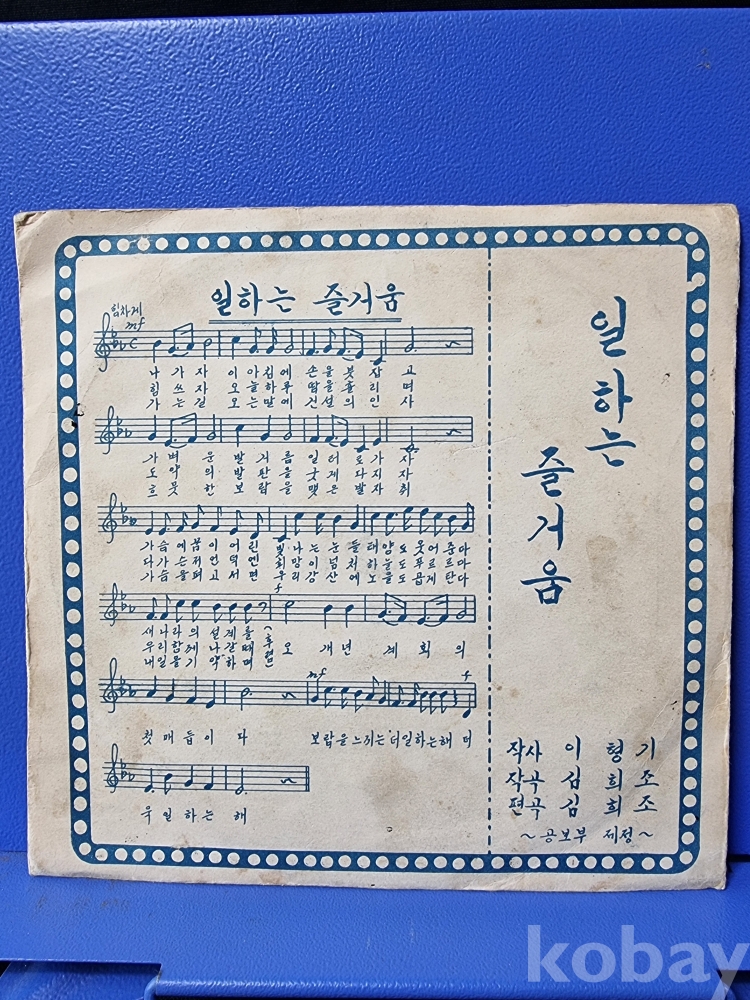 일하는 즐거움
힘차게
mf
나 가 자 이 아침에 손을 붓 잡 고
힘 쓰 자 오 늘하루 땀을 흘 리 며
가 는 길 오 는말에 건설 의 인 사
가 벼 운 발 거 름 일터 로 가 자
도 약 의 발 판 을 굳게 다 지 자
흐 뭇 한 보 람 을 맺은 발 자 취
가슴 에 꿈 이 어 린 빛 나 는 눈 들 태양 도 웃 어 준다
다가 는 저 언 덕 엔 희 망 이 넘 처 하늘 도 푸 르 르마
가슴 을 펴 고 서 면 우 리 강 산 에 노을 도 곱 게 탄다
f
새나라 의 설계 를
우리함 께 나갈 때
내일을 기 약하 며
후렴
오 개년 계 획 의
mf
f
첫 매 듭 이 다 보람을 느끼는 더일하는해 더
우 일 하 는 해
일하는
즐거움
작사 이 형 기
작곡 김 희 조
편곡 김 희 조
~공보부 제정~
kobay